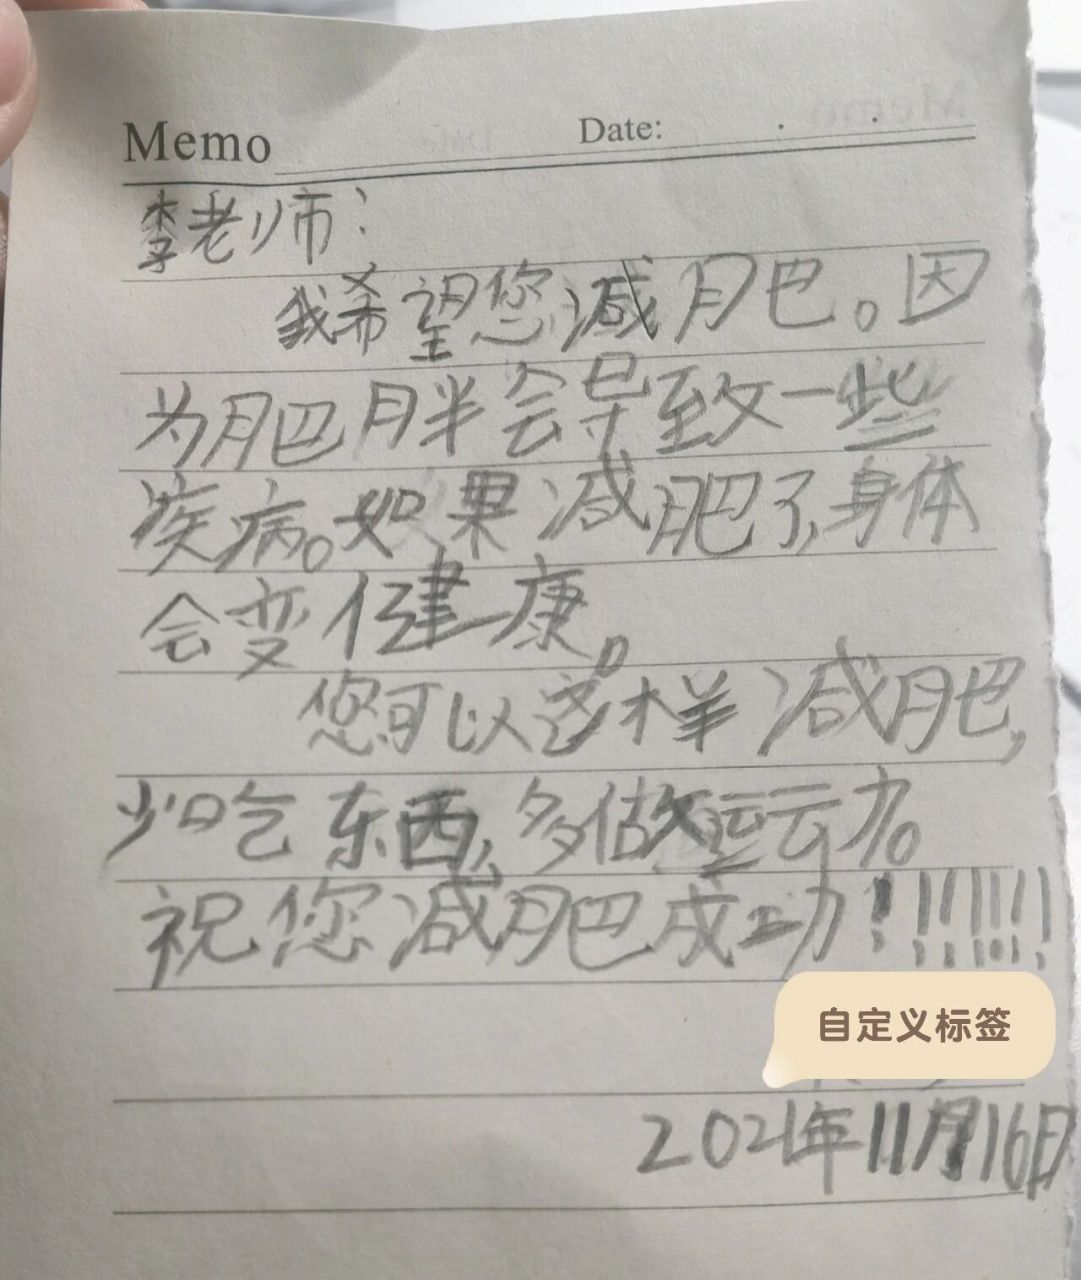 Memo Date: . .
李老师：
我希望您减肥。因
为肥胖会导致一些
疾病。如果减肥了,身体
会变健康。
您可以这样减肥,
少吃东西,多做运动。
祝您减肥成功!!!!!!!
自定义标签
2021年11月16日